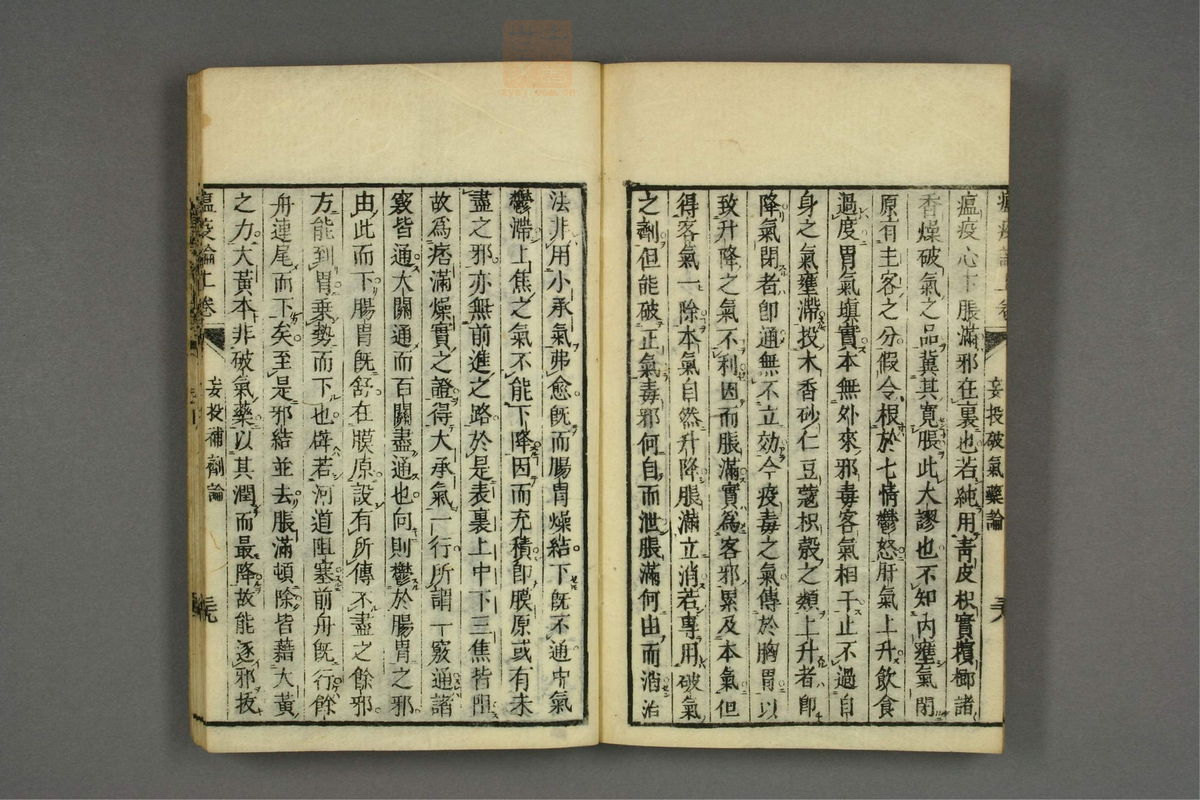 瘟疫論上卷 妄投破氣藥論 三六
瘟疫心下脹滿邪在裏也若純用青皮枳實檳榔諸
香燥破氣之品冀其寬脹此大謬也不知内壅氣閉
原有主客之分假令根於七情鬱怒肝氣上升飲食
過度胃氣填實本無外來邪毒客氣相干止不過自
身之氣壅滯投木香砂仁豆蔻枳殼之類上升者即
降氣閉者即通無不立効今疫毒之氣傳於胸胃以
致升降之氣不利因而脹滿實為客邪累及本氣但
得客氣一除本氣自然升降脹滿立消若專用破氣
之劑但能破正氣毒邪何自而泄脹滿何由而消治
法非用小承氣弗愈既而腸胃燥結下既不通中氣
鬱滯上焦之氣不能下降因而充積即膜原或有未
盡之邪亦無前進之路於是表裏上中下三焦皆阻
故為痞滿燥實之證得大承氣一行所謂一竅通諸
竅皆通大關通而百關盡通也向則鬱於腸胃之邪
由此而下腸胃既舒在膜原設有所傳不盡之餘邪
方能到胃乗勢而下也譬若河道阻塞前舟既行餘
舟連尾而下矣至是邪結並去脹滿頓除皆藉大黃
之力大黃本非破氣藥以其潤而最降故能逐邪拔
瘟疫論上卷 妄投補劑論